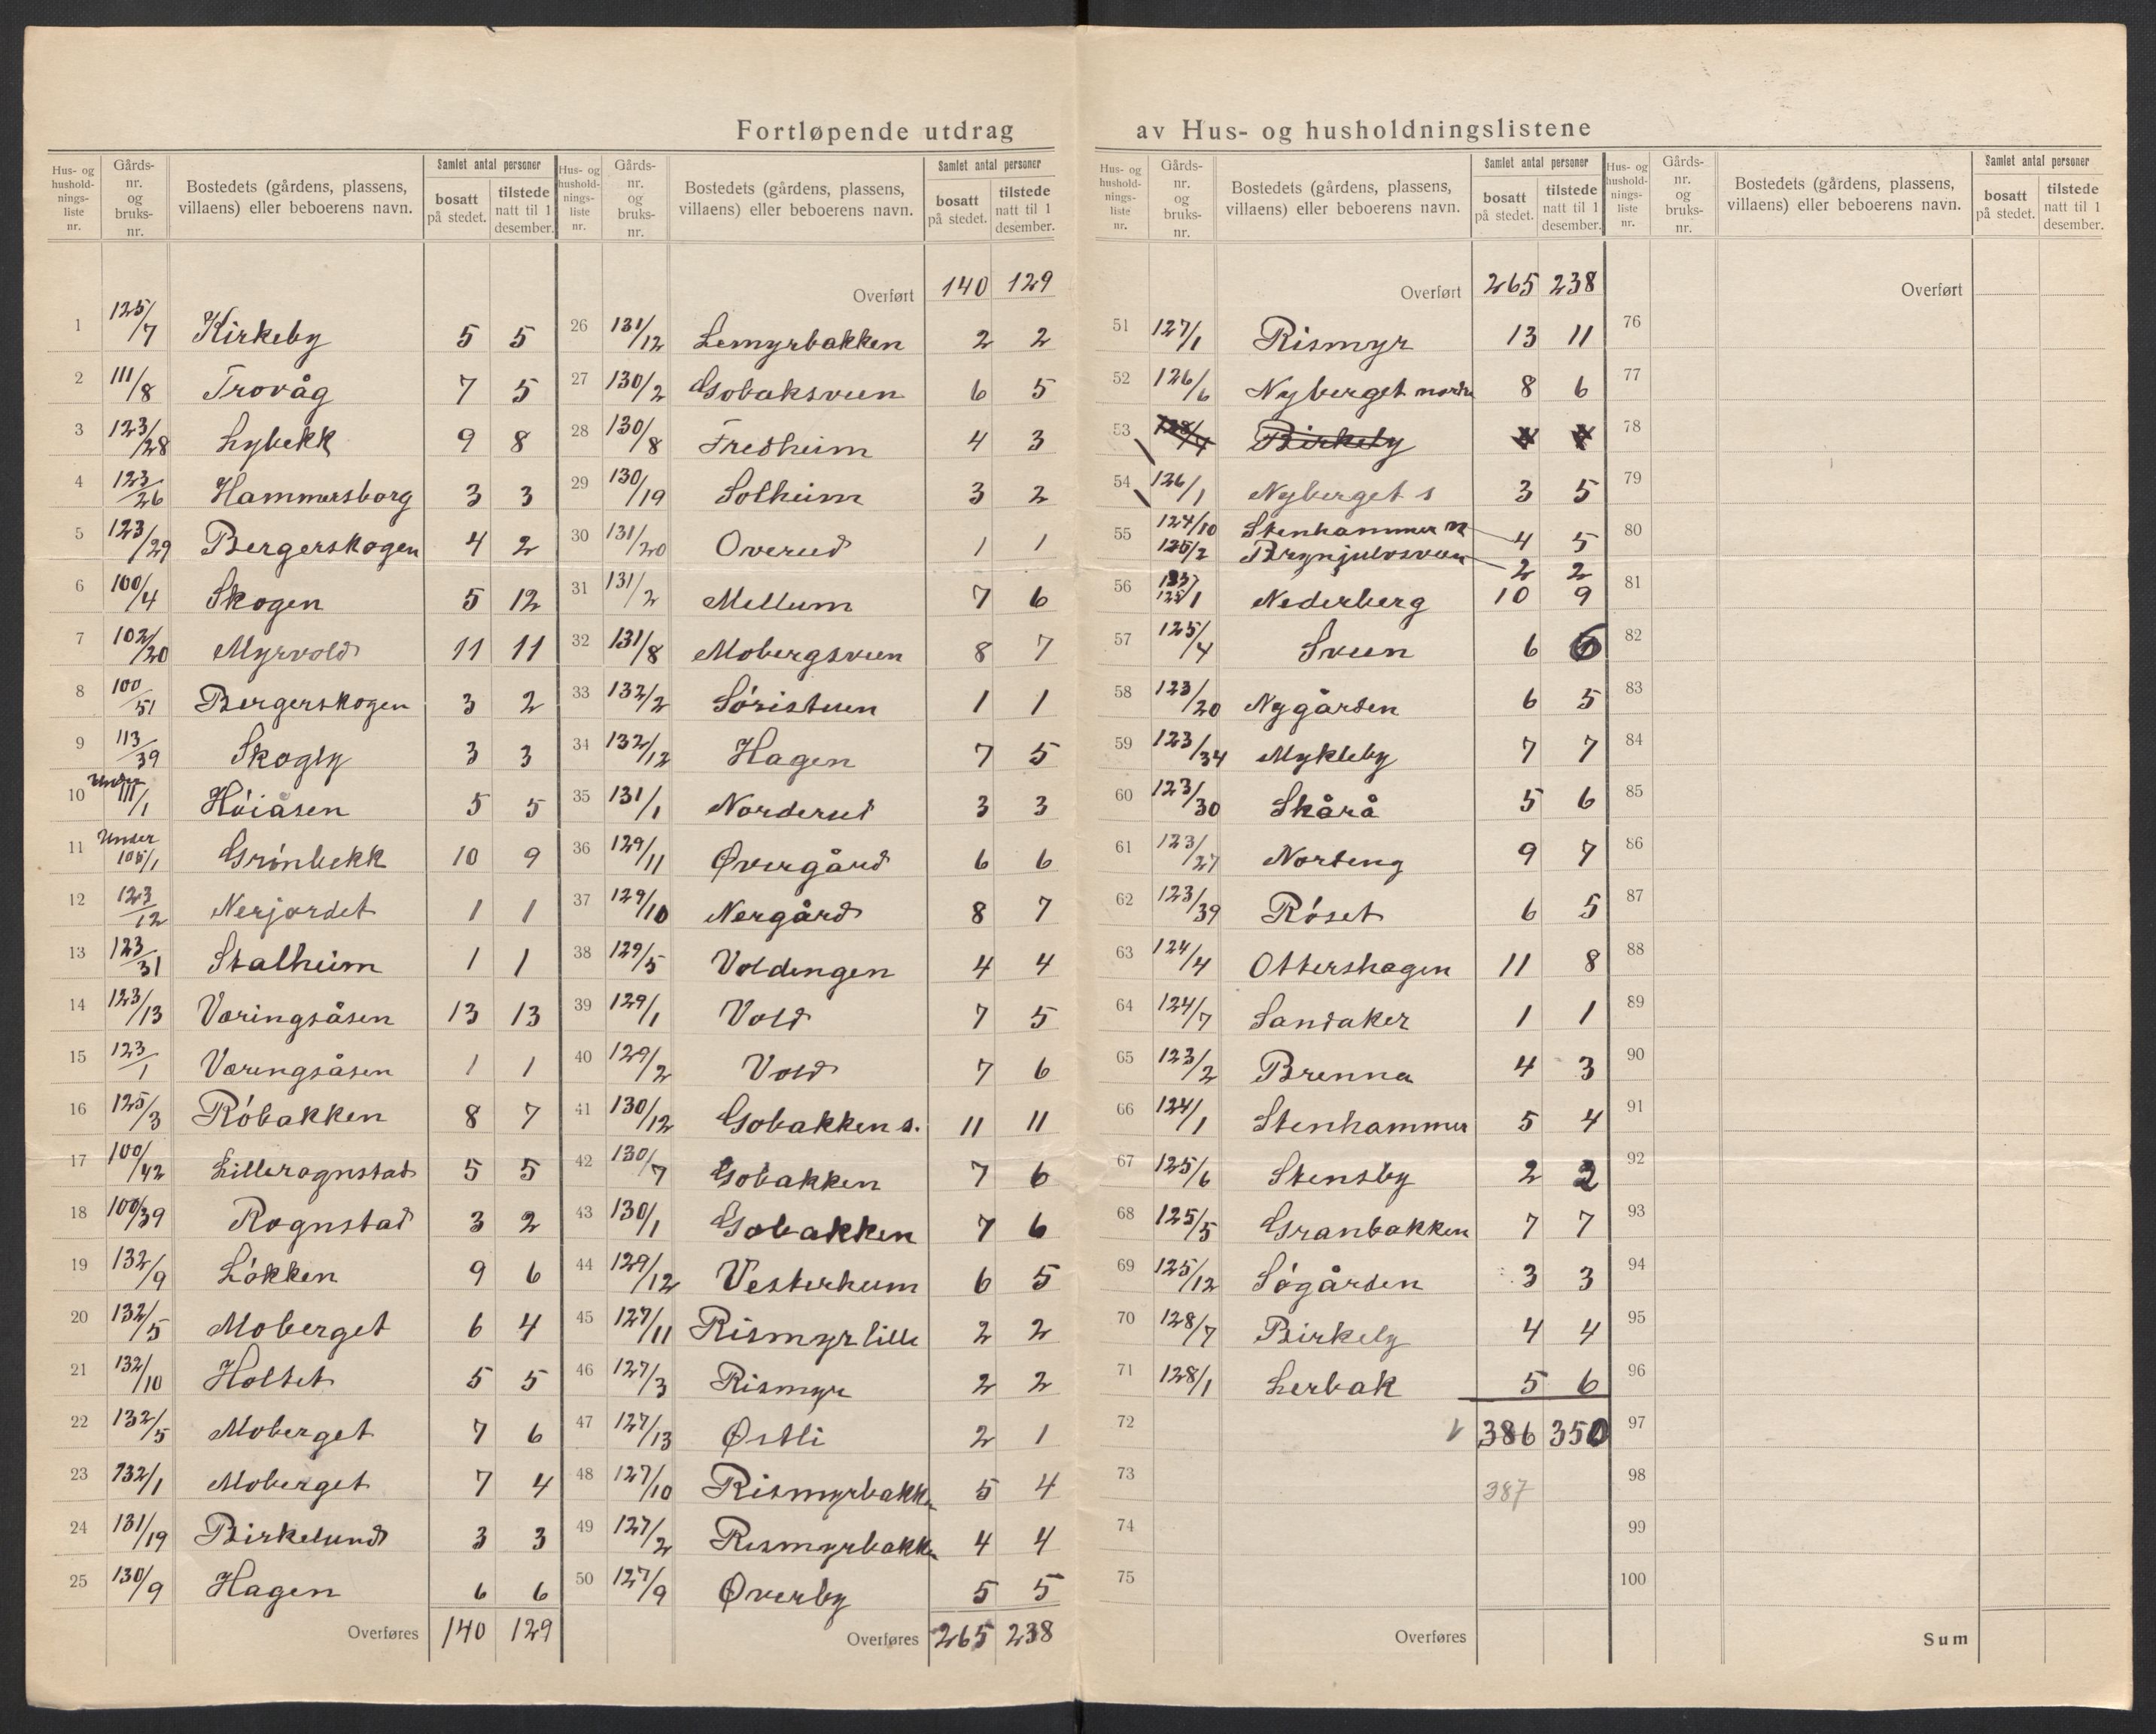 Fortløpende utdrag av Hus- og husholdningslistene
Hus- og hushold- nings- liste nr. | Gårds- nr. og bruks- nr. | Bostedets (gårdens, plassens, villaens) eller beboerens navn. | Samlet antal personer | bosatt på stedet. | tilstede natt til 1 desember.
1 125/7 Kirkeby 5 5
2 111/8 Trovåg 7 5
3 123/28 Lybekk 9 8
4 123/26 Hammersborg 3 3
5 123/29 Bergerskogen 4 2
6 100/4 Skogen 5 12
7 102/20 Myrvold 11 11
8 100/51 Bergerskogen 3 2
9 113/39 Skogly 3 3
10 Under 111/1 Høiåsen 5 5
11 Under 105/1 Grønbekk 10 9
12 123/12 Nerjordet 1 1
13 123/31 Stalheim 1 1
14 123/13 Væringsåsen 13 13
15 123/1 Væringsåsen 1 1
16 125/3 Røbakken 8 7
17 100/42 Lillerognstad 5 5
18 100/39 Rognstad 3 2
19 132/9 Løkken 9 6
20 132/5 Moberget 6 4
21 132/10 Holtet 5 5
22 132/5 Moberget 7 6
23 132/1 Moberget 7 4
24 131/19 Birkelund 3 3
25 130/9 Hagen 6 6
Overføres 140 129
Hus- og hushold- nings- liste nr. | Gårds- nr. og bruks- nr. | Bostedets (gårdens, plassens, villaens) eller beboerens navn. | Samlet antal personer | bosatt på stedet. | tilstede natt til 1 desember.
Overført 140 129
26 131/12 Lemyrbakken 2 2
27 130/2 Gobaksveen 6 5
28 130/8 Fredheim 4 3
29 130/19 Solheim 3 2
30 131/20 Overud 1 1
31 131/2 Mellum 7 6
32 131/8 Mobergsveen 8 7
33 132/2 Søristuen 1 1
34 132/12 Hagen 7 5
35 131/1 Norderud 3 3
36 129/11 Øvergård 6 6
37 129/10 Nergård 8 7
38 129/5 Voldengen 4 4
39 129/1 Vold 7 5
40 129/2 Vold 7 6
41 130/12 Gobakken s. 11 11
42 130/7 Gobakken 7 6
43 130/1 Gobakken 7 6
44 129/12 Vesterhum 6 5
45 127/11 Rismyr lille 2 2
46 127/3 Rismyr 2 2
47 127/13 Østli 2 1
48 127/10 Rismyrbakken 5 4
49 127/2 Rismyrbakken 4 4
50 127/9 Øverby 5 5
Overføres 265 238
Hus- og hushold- nings- liste nr. | Gårds- nr. og bruks- nr. | Bostedets (gårdens, plassens, villaens) eller beboerens navn. | Samlet antal personer | bosatt på stedet. | tilstede natt til 1 desember.
Overført 265 238
51 127/1 Rismyr 13 11
52 126/6 Nyberget nordre 8 6
53 Birkely
54 126/1 Nyberget s 3 5
55 124/10 Stenhammer n 4 5
125/2 Brynjulvsveen 2 2
56 125/1 Nederberg 10 9
57 125/4 Sveen 6 6
58 123/20 Nygården 6 5
59 123/34 Mykleby 7 7
60 123/30 Skårå 5 6
61 123/27 Nordeng 9 7
62 123/39 Røset 6 5
63 124/4 Ottershagen 11 8
64 124/7 Sandaker 1 1
65 123/2 Brenna 4 3
66 124/1 Stenhammer 5 4
67 125/6 Stensby 2 2
68 125/5 Granbakken 7 7
69 125/12 Søgården 3 3
70 128/7 Birkely 4 4
71 128/1 Lerbak 5 6
72 386 350
73 387
74
75
Overføres
Hus- og hushold- nings- liste nr. | Gårds- nr. og bruks- nr. | Bostedets (gårdens, plassens, villaens) eller beboerens navn. | Samlet antal personer | bosatt på stedet. | tilstede natt til 1 desember.
Overført
76
77
78
79
80
81
82
83
84
85
86
87
88
89
90
91
92
93
94
95
96
97
98
99
100
Sum